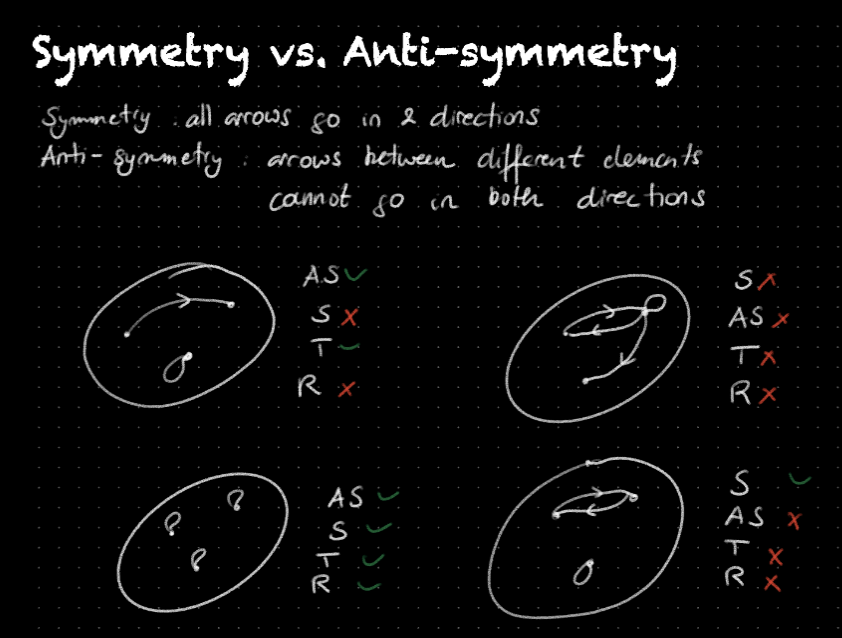 Symmetry vs. Anti-symmetry
Symmetry : all arrows go in 2 directions
Anti-symmetry : arrows between different elements
cannot go in both directions
AS ✓
S ✗
T ✓
R ✗
S ✗
AS ✗
T ✗
R ✗
AS ✓
S ✓
T ✓
R ✓
S ✓
AS ✗
T ✗
R ✗